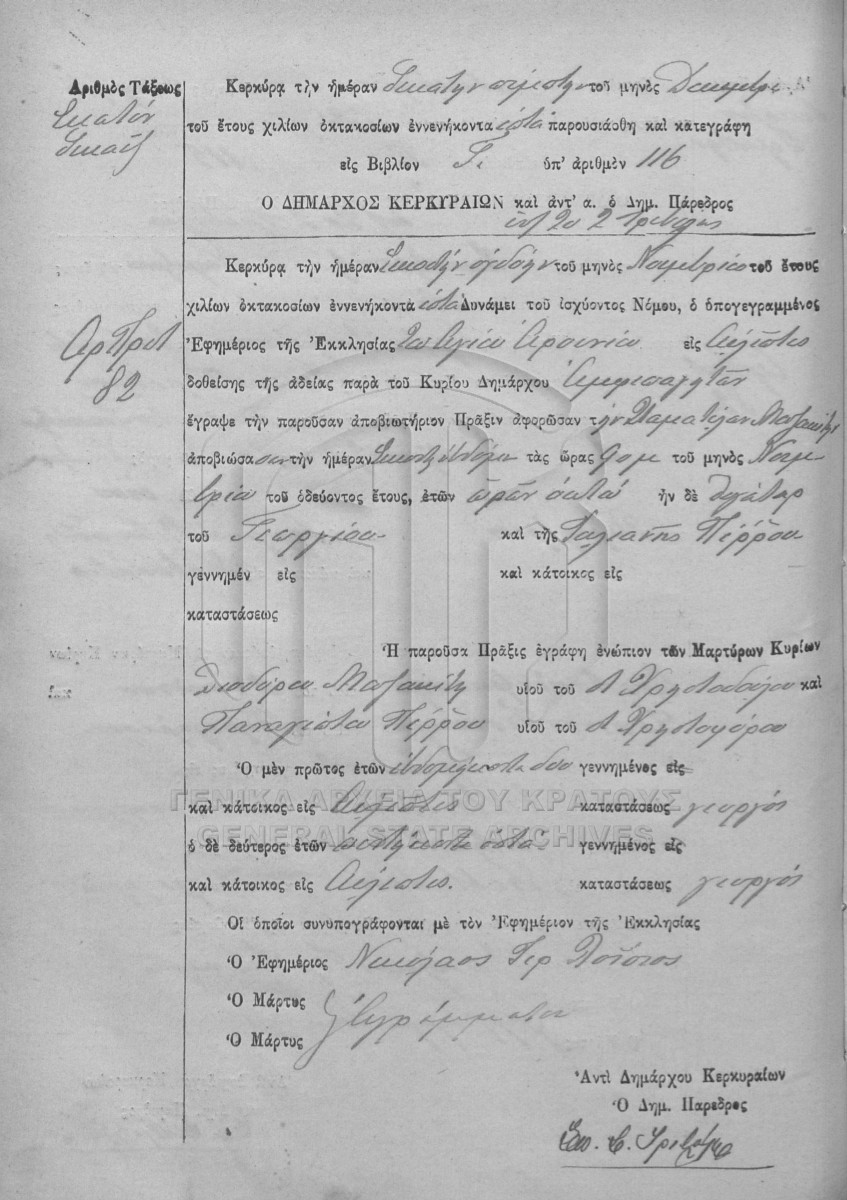 Ἀριθμὸς Τάξεως
Ἑκατόν
Δεκαέξ
Κερκύρᾳ τὴν ἡμέραν Εἰκοστὴν πέμπτην τοῦ μηνὸς Δεκεμβρίου
τοῦ ἔτους χιλίων ὀκτακοσίων ἐννενήκοντα ἑπτὰ παρουσιάσθη καὶ κατεγράφη
εἰς Βιβλίον ὑπ' ἀριθμὸν 116
Ο ΔΗΜΑΡΧΟΣ ΚΕΡΚΥΡΑΙΩΝ καὶ ἀντ' α. ὁ Δημ. Πάρεδρος
Κερκύρᾳ τὴν ἡμέραν Εἰκοστὴν ὀγδόην τοῦ μηνὸς Νοεμβρίου τοῦ ἔτους
χιλίων ὀκτακοσίων ἐννενήκοντα ἑπτὰ Δυνάμει τοῦ ἰσχύοντος Νόμου, ὁ ὑπογεγραμμένος
Ἀρ Πρωτ
82
Ἐφημέριος τῆς Ἐκκλησίας Τοῦ Ἁγίου Ἀρσενίου εἰς
δοθείσης τῆς ἀδείας παρὰ τοῦ Κυρίου Δημάρχου
ἔγραψε τὴν παροῦσαν ἀποβιωτήριον Πρᾶξιν ἀφορῶσαν τὴν Σταματέλαν
ἀποβιώσασαν τὴν ἡμέραν Εἰκοστὴ ἑβδόμη τὰς ὥρας 9 π μ τοῦ μηνὸς Νοεμ
βρίου τοῦ ὁδεύοντος ἔτους, ἐτῶν ὡρῶν ὀκτώ ἦν δὲ θυγάτηρ
τοῦ Γεωργίου καὶ τῆς Πέρρου
γεννημέν εἰς καὶ κάτοικος εἰς
καταστάσεως
Ἡ παροῦσα Πρᾶξις ἐγράφη ἐνώπιον τῶν Μαρτύρων Κυρίων
υἱοῦ τοῦ Χριστοδούλου καὶ
Παναγιώτου Πέρρου υἱοῦ τοῦ Χριστοφόρου
Ὁ μὲν πρῶτος ἐτῶν ἑβδομήκοντα δύο γεννημένος εἰς
καὶ κάτοικος εἰς καταστάσεως γεωργός
ὁ δὲ δεύτερος ἐτῶν γεννημένος εἰς
καὶ κάτοικος εἰς καταστάσεως γεωργός
Οἱ ὁποῖοι συνυπογράφονται μὲ τὸν Ἐφημέριον τῆς Ἐκκλησίας
Ὁ Ἐφημέριος Νικόλαος Ἱερ
Ὁ Μάρτυς Ἀγράμματοι
Ὁ Μάρτυς
Ἀντὶ Δημάρχου Κερκυραίων
Ὁ Δημ. Πάρεδρος
ΓΕΝΙΚΑ ΑΡΧΕΙΑ ΤΟΥ ΚΡΑΤΟΥΣ
GENERAL STATE ARCHIVES